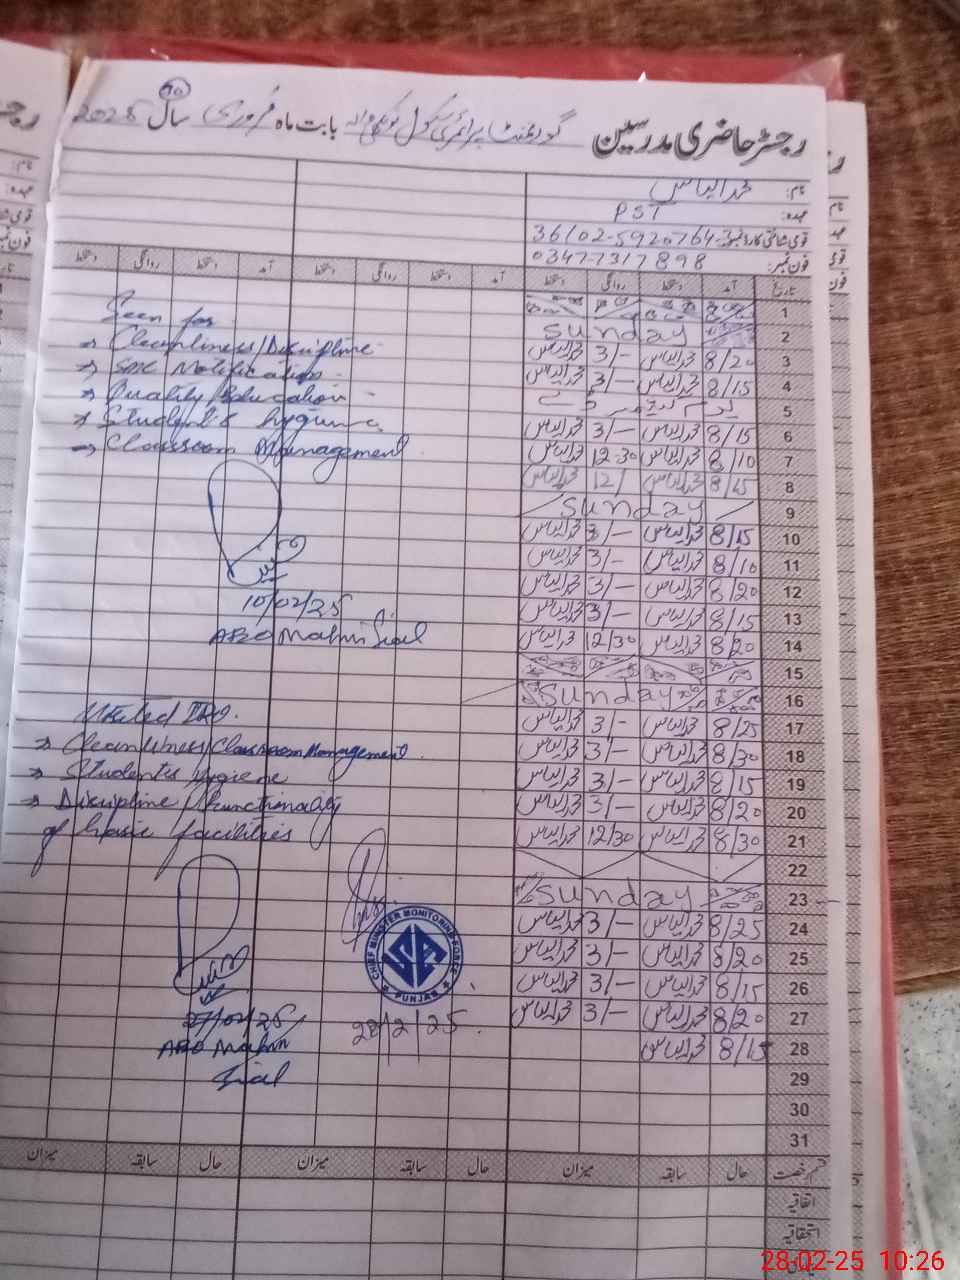 رجسٹر حاضری مدرسین گورنمنٹ پرائمری سکول بابت ماہ فروری سال 2025
نام: محمد الیاس
عہدہ: PST
قومی شناختی کارڈ نمبر: 36102-5920764-3
فون نمبر: 0347-7317898
تاریخ آمد دستخط روانگی دستخط آمد دستخط روانگی دستخط آمد دستخط روانگی دستخط
1
2 Sunday
3 8/20 محمد الیاس 3/- محمد الیاس
4 8/15 محمد الیاس 3/- محمد الیاس
5 یوم کشمیر
6 8/15 محمد الیاس 3/- محمد الیاس
7 8/10 محمد الیاس 12-30 محمد الیاس
8 8/15 محمد الیاس 12/ محمد الیاس
9 Sunday
10 8/15 محمد الیاس 3/- محمد الیاس
11 8/10 محمد الیاس 3/- محمد الیاس
12 8/20 محمد الیاس 3/- محمد الیاس
13 8/15 محمد الیاس 3/- محمد الیاس
14 8/20 محمد الیاس 12/30 محمد الیاس
15
16 Sunday
17 8/25 محمد الیاس 3/- محمد الیاس
18 8/30 محمد الیاس 3/- محمد الیاس
19 8/15 محمد الیاس 3/- محمد الیاس
20 8/20 محمد الیاس 3/- محمد الیاس
21 8/30 محمد الیاس 12/30 محمد الیاس
22
23 Sunday
24 8/25 محمد الیاس 3/- محمد الیاس
25 8/20 محمد الیاس 3/- محمد الیاس
26 8/15 محمد الیاس 3/- محمد الیاس
27 8/20 محمد الیاس 3/- محمد الیاس
28 8/15 محمد الیاس
29
30
31
Seen for
→ Cleanliness/Discipline
→ SMC Notification
→ Quality Education
→ Students hygiene
→ Classroom Management
10/02/25
AEO Mahni Sial
Visited
→ Cleanliness/Classroom Management
→ Students Hygiene
→ Discipline/functionality
of basic facilities
27/02/25
AEO Mahni
Sial
CHIEF MINISTER MONITORING FORCE
PUNJAB
28/2/25
قسم رخصت حال سابقہ میزان حال سابقہ میزان حال سابقہ میزان
اتفاقیہ
استحقاقیہ
28-02-25 10:26